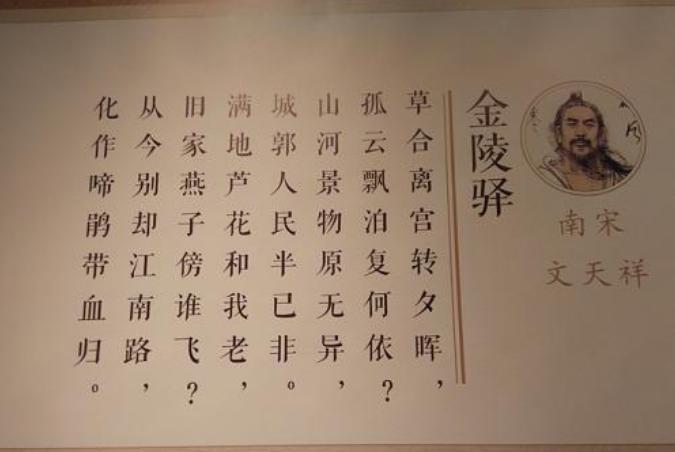 金陵驿
南宋
文天祥
草合离宫转夕晖，
孤云飘泊复何依？
山河景物原无异，
城郭人民半已非。
满地芦花和我老，
旧家燕子傍谁飞？
从今别却江南路，
化作啼鹃带血归。